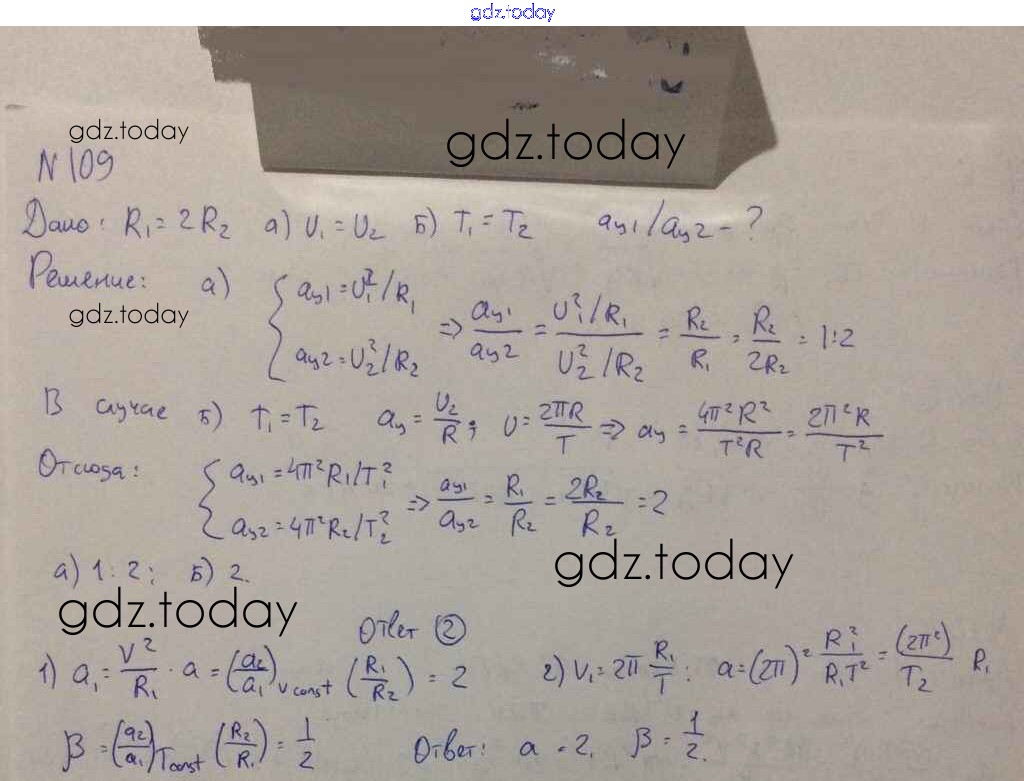 gdz.today
gdz.today
gdz.today
N 109
Дано: R₁ = 2R₂ а) υ₁ = υ₂ Б) T₁ = T₂ aц1/aц2 - ?
Решение: а) { aц1 = υ₁²/R₁
gdz.today
aц2 = υ₂²/R₂ => aц1/aц2 = (υ₁²/R₁)/(υ₂²/R₂) = R₂/R₁ = R₂/2R₂ = 1:2
В случае Б) T₁ = T₂ aц = υ₂/R; υ = 2πR/T => aц = 4π²R²/T²R = 2π²R/T²
Отсюда: { aц1 = 4π²R₁/T₁²
aц2 = 4π²R₂/T₂² => aц1/aц2 = R₁/R₂ = 2R₂/R₂ = 2
а) 1:2; Б) 2.
gdz.today
gdz.today
Ответ ②
1) a₁ = V²/R₁ · a = (a₂/a₁)v const (R₁/R₂) = 2 2) V₁ = 2π R₁/T: a = (2π)² R₁²/R₁T² = (2π²)/T₂ R₁
β = (a₂/a₁)T const (R₂/R₁) = 1/2 Ответ: a = 2, β = 1/2.